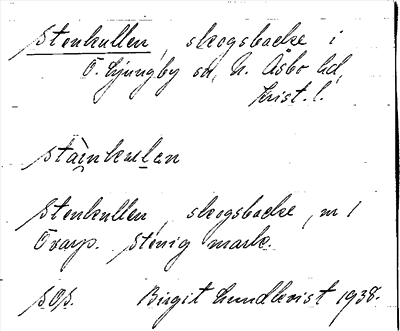 Stenkullen, skogsbacke i
Ö. Ljungby sn, N. Åsbo hd,
Krist. l.
Stenkullen, skogsbacke, nr 1
Örarp. Stenig mark.
Birgit Lundkvist 1938.